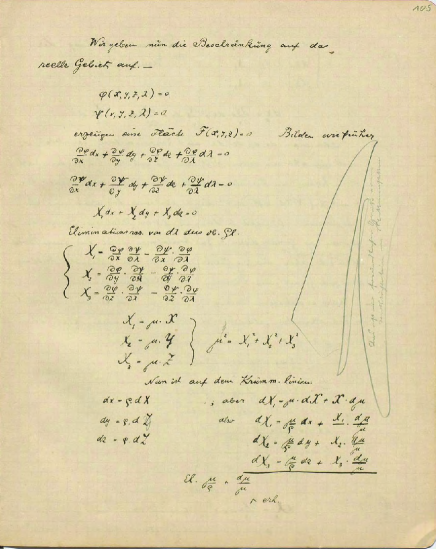 105
Wir geben nun die Beschränkung auf das
reelle Gebiet auf. —
φ(x,y,z,λ)=0
ψ(x,y,z,λ)=0
erzeugen eine Fläche F(x,y,z)=0 Bilden wir früher
∂φ/∂x dx + ∂φ/∂y dy + ∂φ/∂z dz + ∂φ/∂λ dλ = 0
∂ψ/∂x dx + ∂ψ/∂y dy + ∂ψ/∂z dz + ∂ψ/∂λ dλ = 0
X₁dx + X₂dy + X₃dz = 0
von dλ aus ob. Gl.
X₁ = ∂φ/∂x ∂ψ/∂λ − ∂ψ/∂x · ∂φ/∂λ
X₂ = ∂φ/∂y · ∂ψ/∂λ − ∂ψ/∂y · ∂φ/∂λ
X₃ = ∂φ/∂z · ∂ψ/∂λ − ∂ψ/∂z · ∂φ/∂λ
X₁ = μ · X
X₂ = μ · Y
X₃ = μ · Z
μ² = X₁² + X₂² + X₃²
Nun ist auf den Krümm.linien
dx = ρ dX ; aber dX₁ = μ · dX + X · dμ
dy = ρ dY also dX₁ = μ/ρ dx + X₁ · dμ/μ
dz = ρ dZ dX₂ = μ/ρ dy + X₂ · dμ/μ
dX₃ = μ/ρ dz + X₃ · dμ/μ
El. μ/ρ u dμ/μ